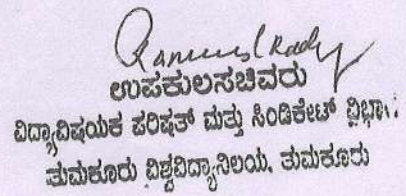 ಉಪಕುಲಸಚಿವರು
ವಿದ್ಯಾವಿಷಯಕ ಪರಿಷತ್ ಮತ್ತು ಸಿಂಡಿಕೇಟ್ ವಿಭಾಗ.
ತುಮಕೂರು ವಿಶ್ವವಿದ್ಯಾನಿಲಯ, ತುಮಕೂರು